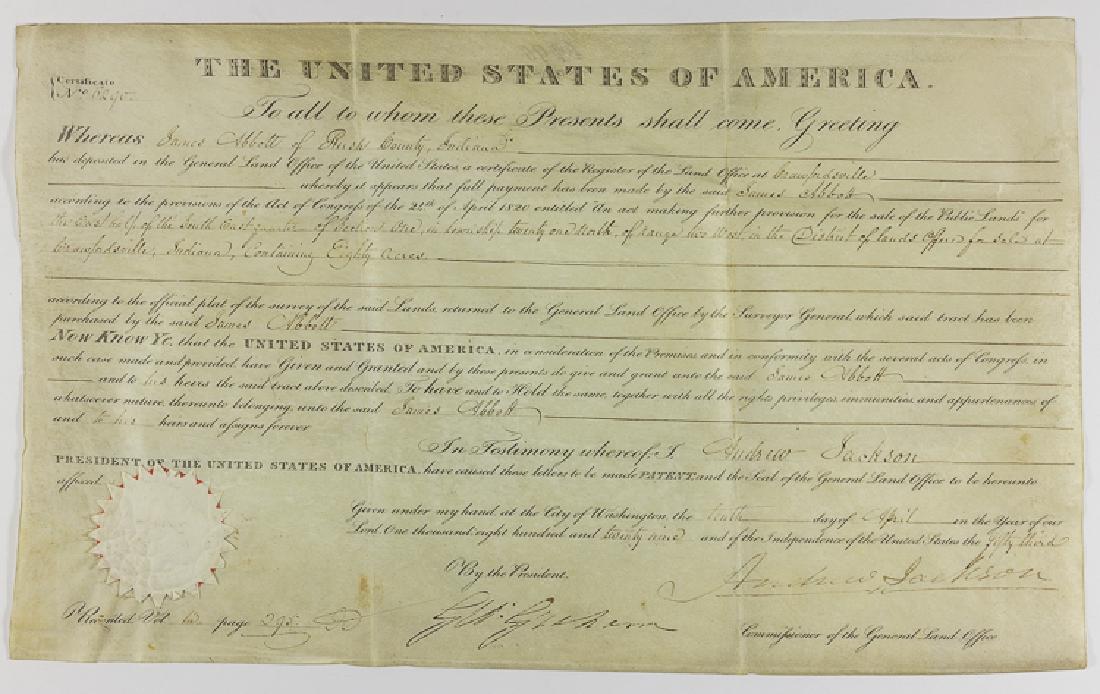 THE UNITED STATES OF AMERICA.
Certificate
No.
To all to whom these Presents shall come, Greeting
Whereas James Abbott of Rush County, Indiana
has deposited in the General Land Office of the United States, a certificate of the Register of the Land Office at Crawfordsville
whereby it appears that full payment has been made by the said James Abbott
according to the provisions of the Act of Congress of the 24th of April 1820 entitled "An act making further provision for the sale of the Public Lands" for
the East half of the South East quarter of Section One, in township twenty one North, of range two West, in the District of lands offered for sale at
Crawfordsville, Indiana, Containing Eighty acres
according to the official plat of the survey of the said Lands, returned to the General Land Office by the Surveyor General, which said tract has been
purchased by the said James Abbott
Now Know Ye, that the UNITED STATES OF AMERICA, in consideration of the Premises and in conformity with the several acts of Congress, in
such case made and provided, have Given and Granted and by these presents do give and grant unto the said James Abbott
and to his heirs the said tract above described: To have and to Hold the same, together with all the rights privileges, immunities and appurtenances of
whatsoever nature, thereunto belonging, unto the said James Abbott
and to his heirs and assigns forever
In Testimony whereof, I, Andrew Jackson
PRESIDENT OF THE UNITED STATES OF AMERICA, have caused these letters to be made PATENT, and the Seal of the General Land Office to be hereunto
affixed.
Given under my hand, at the City of Washington, the tenth day of April in the Year of our
Lord One thousand eight hundred and twenty nine and of the Independence of the United States the fifty third
By the President.
Andrew Jackson
Recorded Vol page 295
Commissioner of the General Land Office